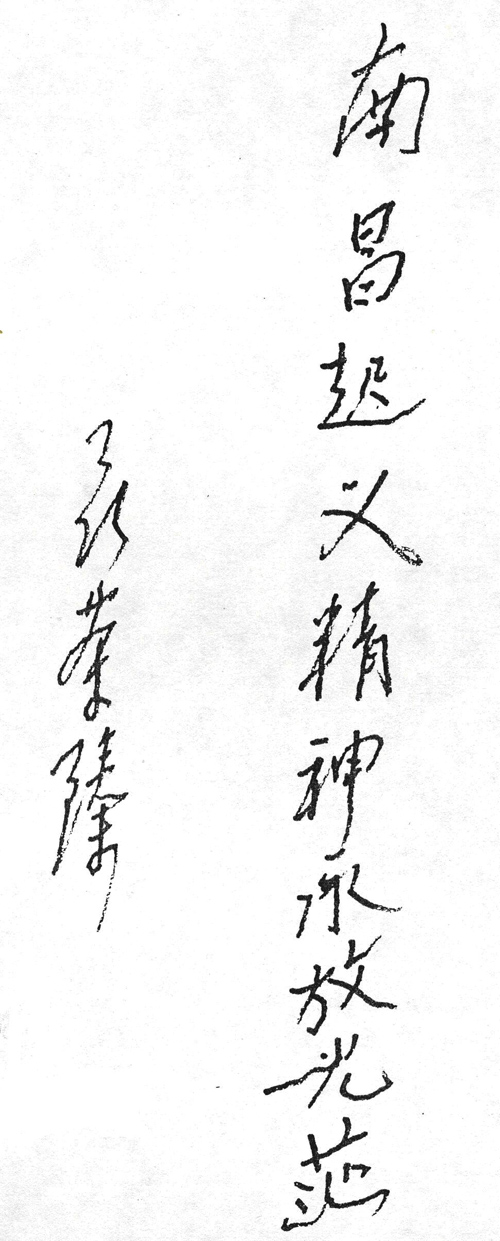 南昌起义精神永放光茫
聂荣臻